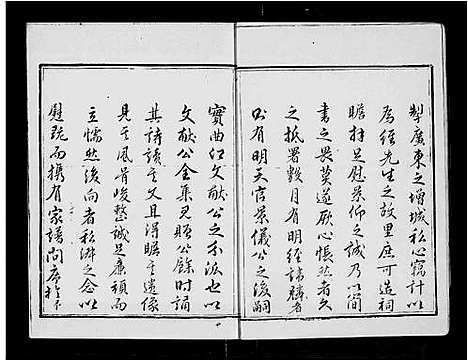 製廣東之增城私心竊計以
為經先生之故里庶可造祠
瞻拜足慰景仰之誠乃以簡
書之畏莫遂厥心悵然者久
之抵署數月有明經諱麟者
出有明天官榮儀公之後嗣
實曲江文獻公之分派也以
文獻公全集見貽公餘時誦
其詩讀其文且得瞻其遺像
見其風骨峻整誠足廉頑而
立懦然後向者私淑之念以
慰既而攜有家譜問序於